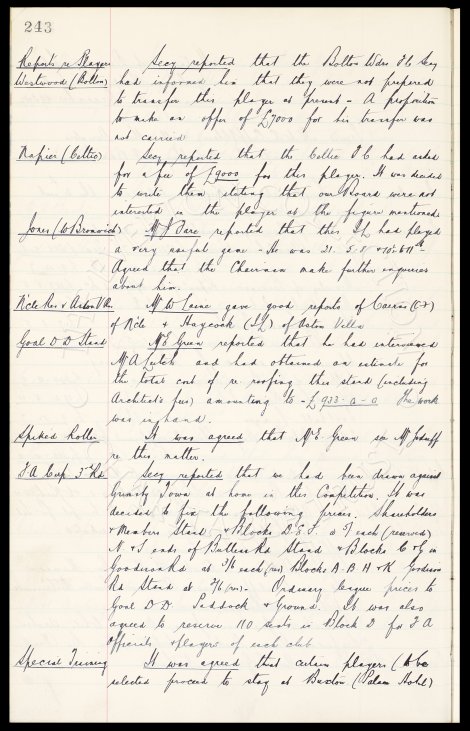 243
Reports re Players Secy reported that the Bolton Wdrs F.C. Secy
Westwood (Bolton) had informed him that they were not prepared
to transfer this player at present - A proposition
to make an offer of £7000 for his transfer was
not carried
Napier (Celtic) Secy reported that the Celtic F C had asked
for a fee of £9000 for this player. It was decided
to write them stating that our Board were not
interested in the player at the figure mentioned.
Jones (W Bromwich) Mr Bare reported that this I.L. had played
a very useful game - He was 21. 5.8 & 10st 6lb -
Agreed that the Chairman make further enquiries
about him.
N'cle Res v Aston V Res Mr W Laine gave good reports of Cairns (C.F.)
of N'cle & Haycock (I.L.) of Aston Villa
Goal D D Stand Mr E Green reported that he had interviewed
Mr A Leitch and had obtained an estimate for
the total cost of re roofing this stand (including
Architect's fees) amounting to - £933-0-0 The work
was in hand.
Spiked Roller It was agreed that Mr E. Green see Mr
re this matter.
F A Cup 3rd Rd. Secy reported that we had been drawn against
Grimsby Town at home in this Competition. It was
decided to fix the following prices. Shareholders
& Members Stand & Blocks D.E.F. @ 5/- each (reserved)
N & S ends of Bullens Rd Stand & Blocks C & G in
Goodison Rd at 3/6 each (res) Blocks A.B.H & K Goodison
Rd Stand at 2/6 (res) - Ordinary league prices to
Goal D.D. Paddock & Ground. It was also
agreed to reserve 110 seats in Block D for F A
Officials & players of each club
Special Training It was agreed that certain players (to be
selected proceed to stay at Buxton (Palace Hotel)